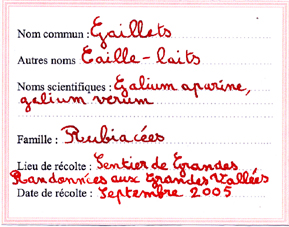 Nom commun : Gaillets
Autres noms Caille-laits
Noms scientifiques : Galium aparine,
galium verum
Famille : Rubiacées
Lieu de récolte : Sentier de Grandes
Randonnées aux Grandes Vallées
Date de récolte : Septembre 2005